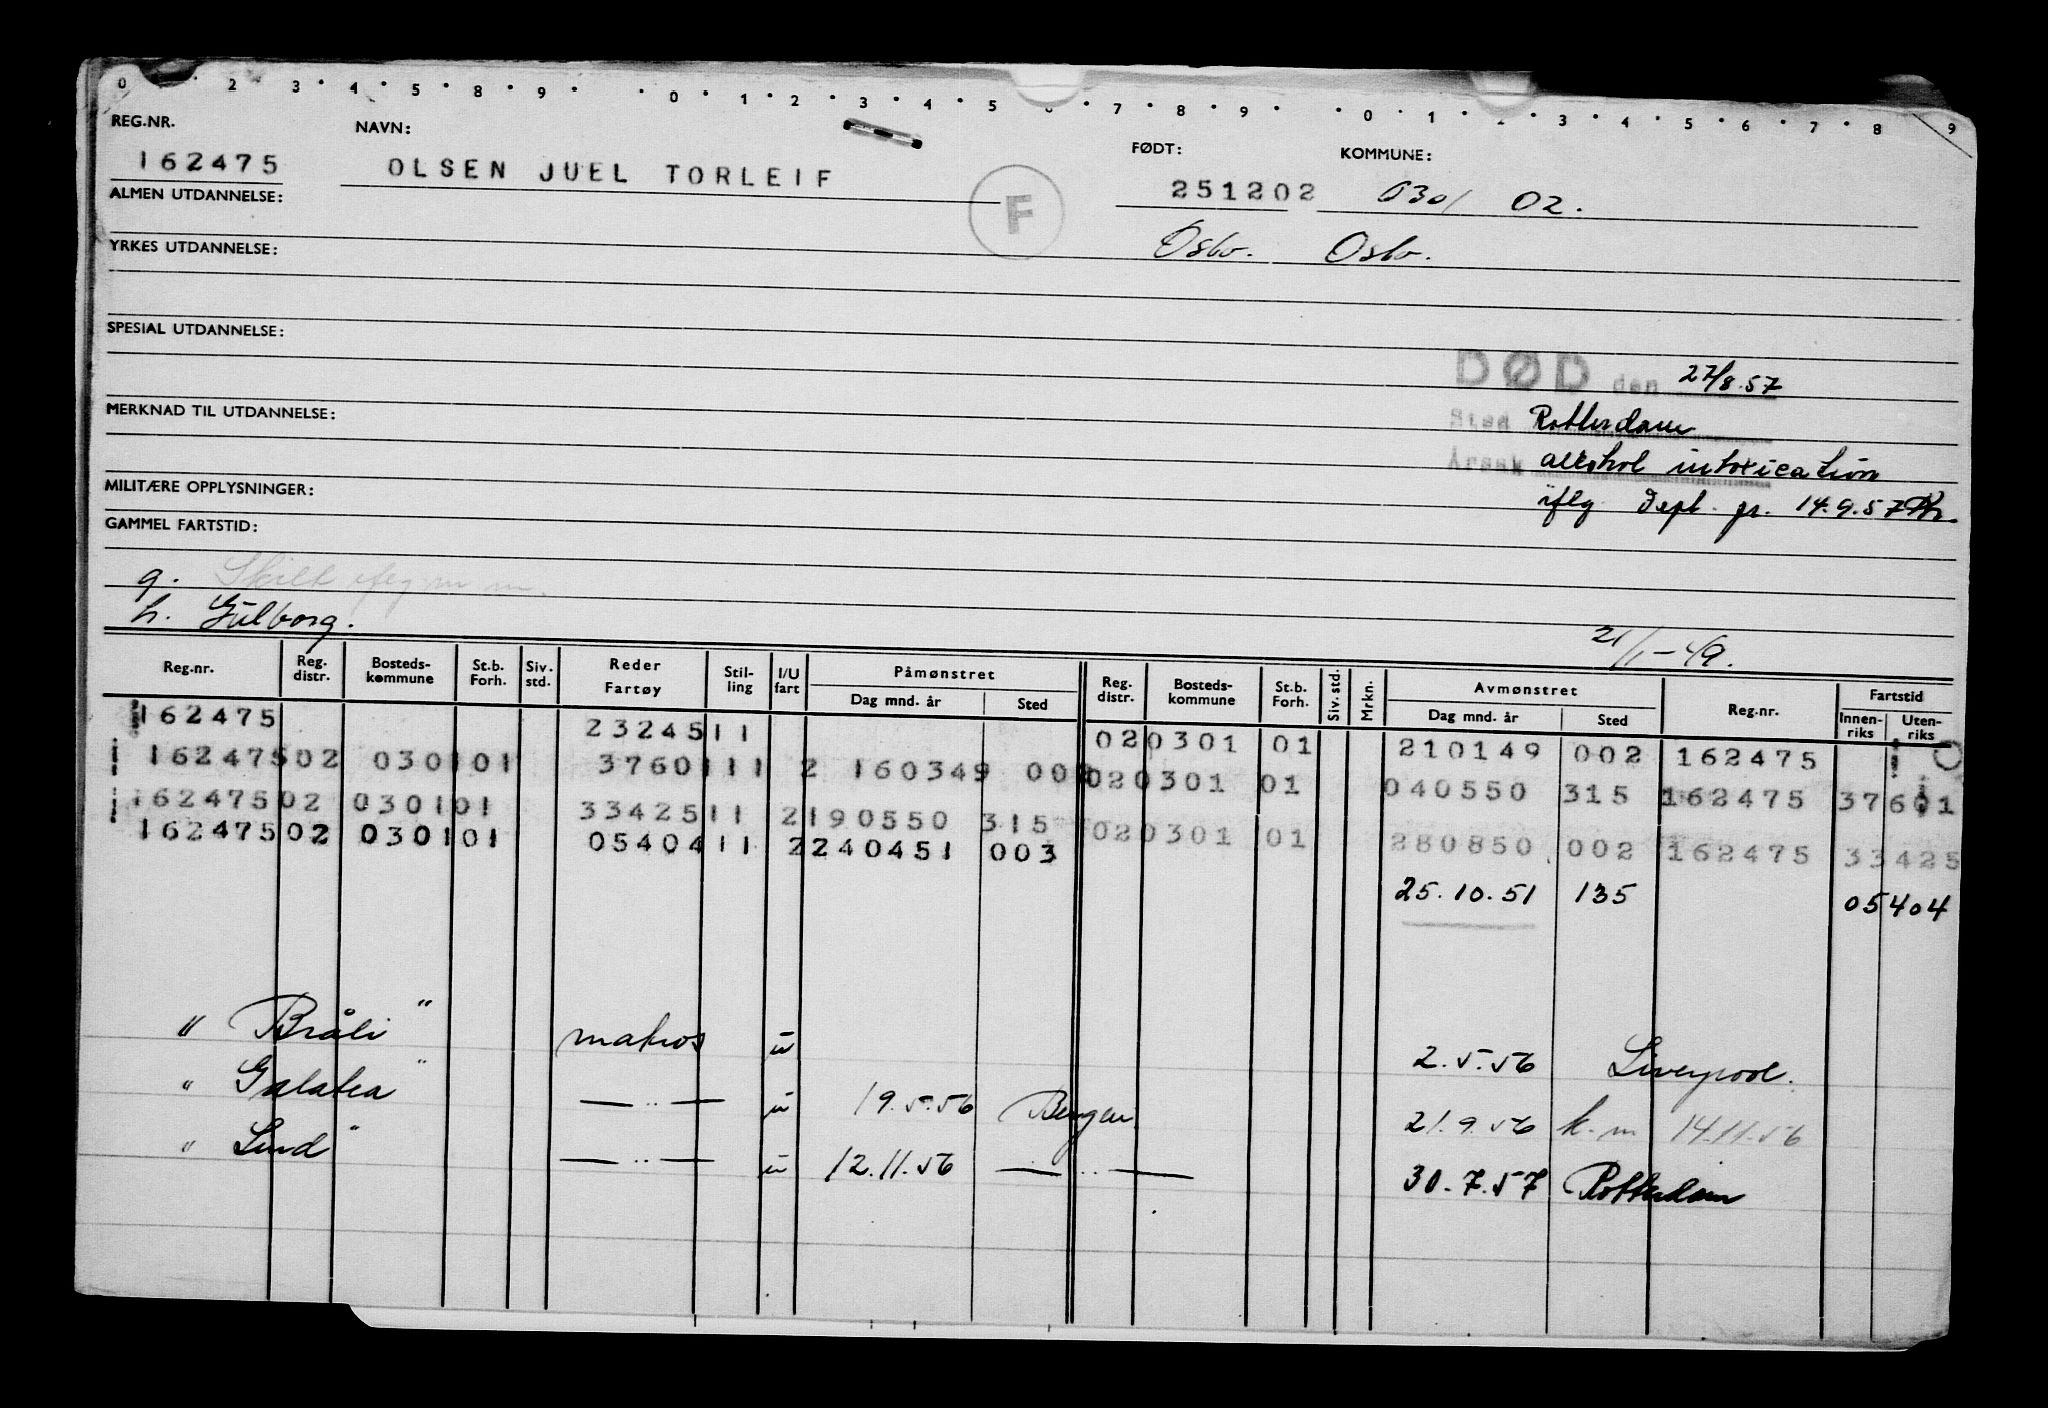 0 · 2 · 3 · 4 · 5 · 8 · 9 · · 0 · 1 · 2 · 3 · 4 · 5 · 6 · 7 · 8 · 9 · · 0 · 1 · 2 · 3 · 4 · 5 · 6 · 7 · 8 · 9
REG.NR. NAVN: FØDT: KOMMUNE:
162475 OLSEN JUEL TORLEIF F 251202 0301 02.
ALMEN UTDANNELSE:
Oslo. Oslo.
YRKES UTDANNELSE:
SPESIAL UTDANNELSE:
DØD den 27/8.57
Sted Rotterdam
MERKNAD TIL UTDANNELSE:
Årsak alkohol intoxication
MILITÆRE OPPLYSNINGER:
iflg Dept. pr. 14.9.57
GAMMEL FARTSTID:
g. Skilt
h. Gülborg. 21/1-49.
Reg.nr. Reg. distr. Bosteds-kommune St.b. Forh. Siv. std. Reder Fartøy Stil-ling I/U fart Påmønstret Dag mnd. år Sted Reg. distr. Bosteds-kommune St.b. Forh. Siv. std. Mrkn. Avmønstret Dag mnd. år Sted Reg.nr. Fartstid Innen-riks Uten-riks
162475 23245 11 02 0301 01 210149 002 162475
162475 02 0301 01 37601 11 2 160349 002 02 0301 01 040550 315 162475 37601
162475 02 0301 01 33425 11 2 190550 315 02 0301 01 280850 002 162475 33425
162475 02 0301 01 05404 11 2 240451 003 25.10.51 135 05404
" Bråli " matros u 2.5.56 Liverpool.
" Galatea " — " — u 19.5.56 Bergen 21.9.56 k.m 14.11.56
" Lind " — " — u 12.11.56 — " — 30.7.57 Rotterdam